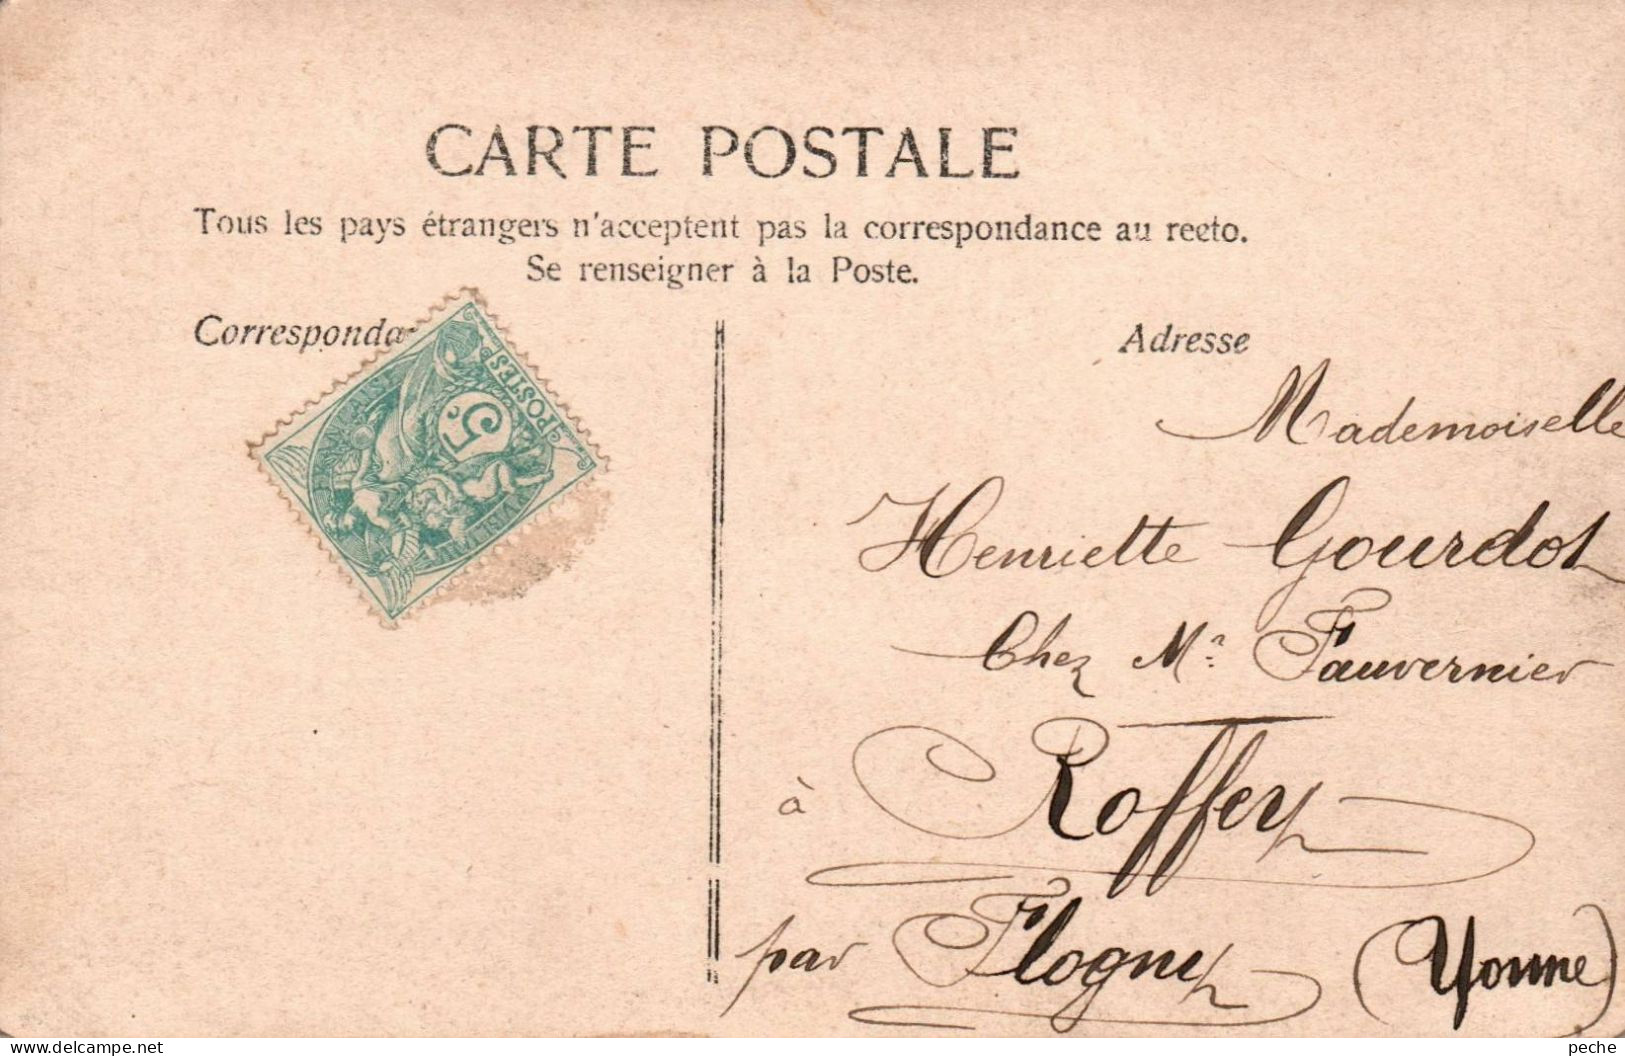 CARTE POSTALE
Tous les pays étrangers n'acceptent pas la correspondance au recto.
Se renseigner à la Poste.
Corresponda
5c
POSTES
Adresse
Mademoiselle
Henriette Gourdot
Chez Mr. Fauvernier
à Roffey
par Flogny (Yonne)
delcampe.net
peche